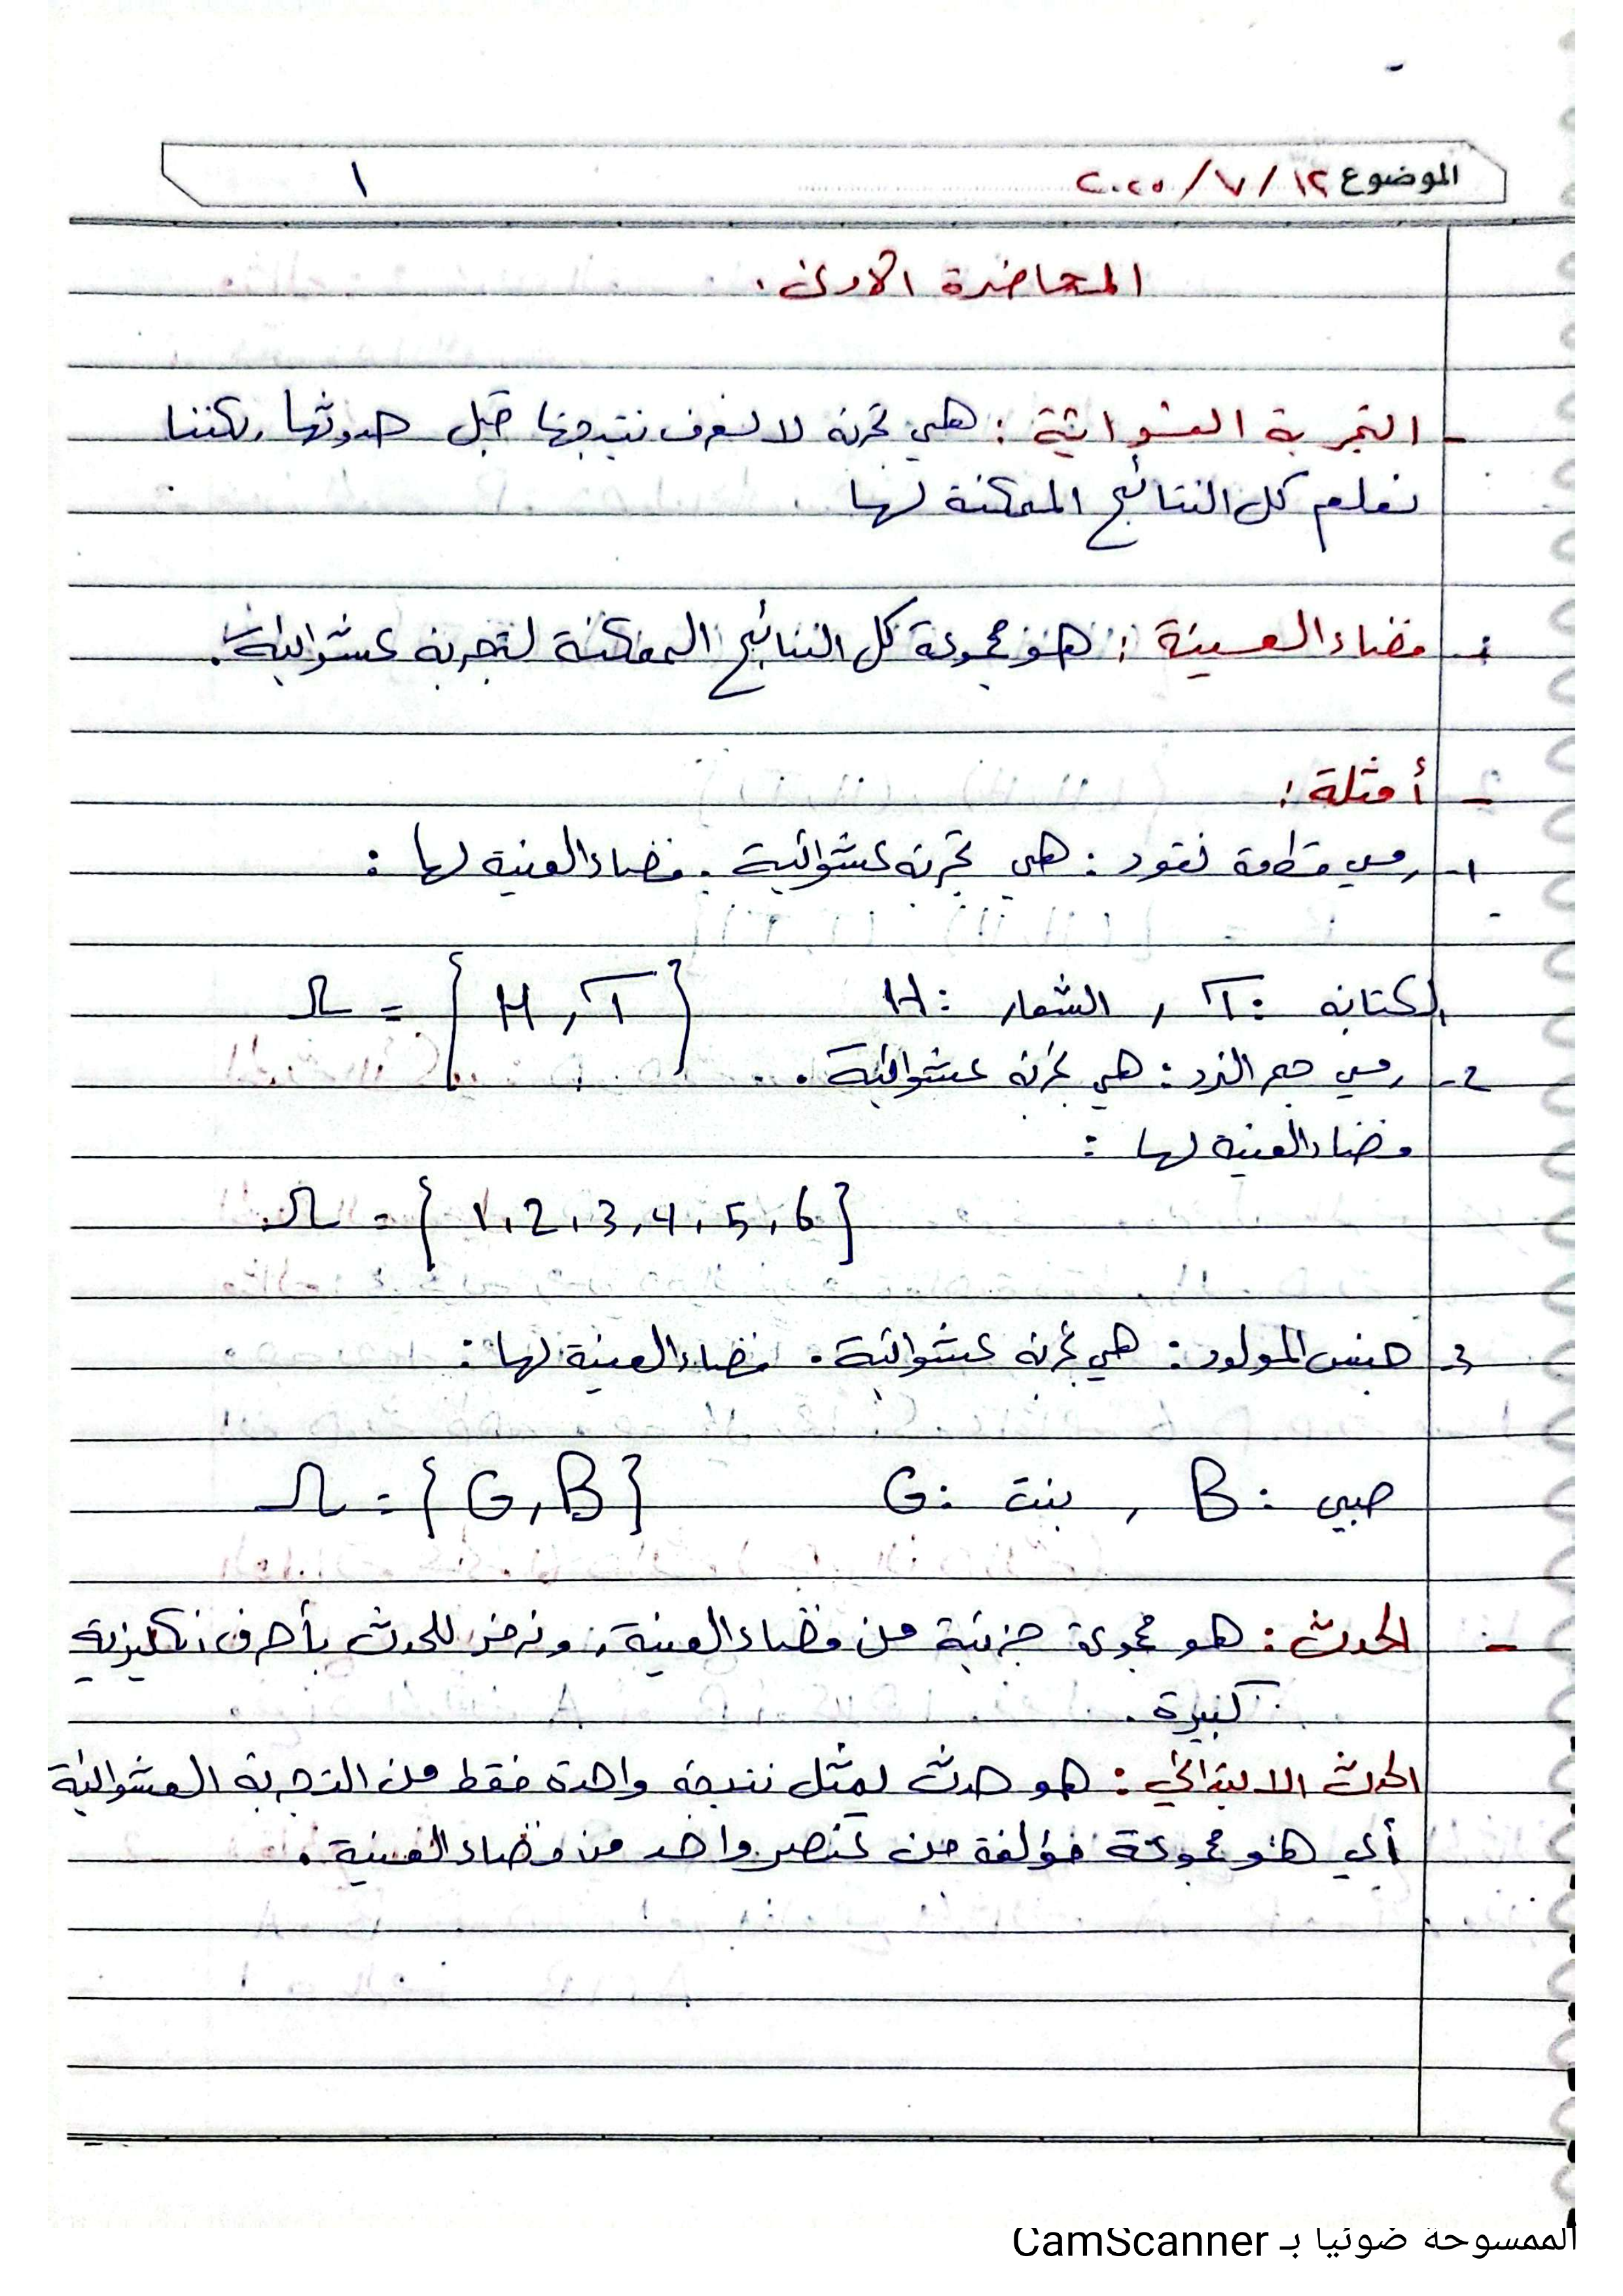 الموضوع ١٢ / ٧ / ٢٠٢٥
١
المحاضرة الاولى .
- التجربة العشوائية : هي تجربة لا نعرف نتيجتها قبل حدوثها ولكننا
نعلم كل النتائج الممكنة لها
- فضاء العينة : هو مجموعة كل النتائج الممكنة لتجربة عشوائية .
- أمثلة :
1- رمي قطعة نقود : هي تجربة عشوائية . فضاء العينة لها :
الكتابة : T , الشعار : H Ω = { H , T }
2- رمي حجر النرد : هي تجربة عشوائية .
فضاء العينة لها :
Ω = { 1 , 2 , 3 , 4 , 5 , 6 }
3- جنس المولود : هي تجربة عشوائية . فضاء العينة لها :
صبي : B , بنت : G Ω = { G , B }
- الحدث : هو مجموعة جزئية من فضاء العينة , ونرمز للحدث بأحرف انكليزية
كبيرة .
الحدث الابتدائي : هو حدث يمثل نتيجة واحدة فقط من التجربة العشوائية
أي هو مجموعة مؤلفة من عنصر واحد من فضاء العينة .
الممسوحة ضوئيا بـ CamScanner